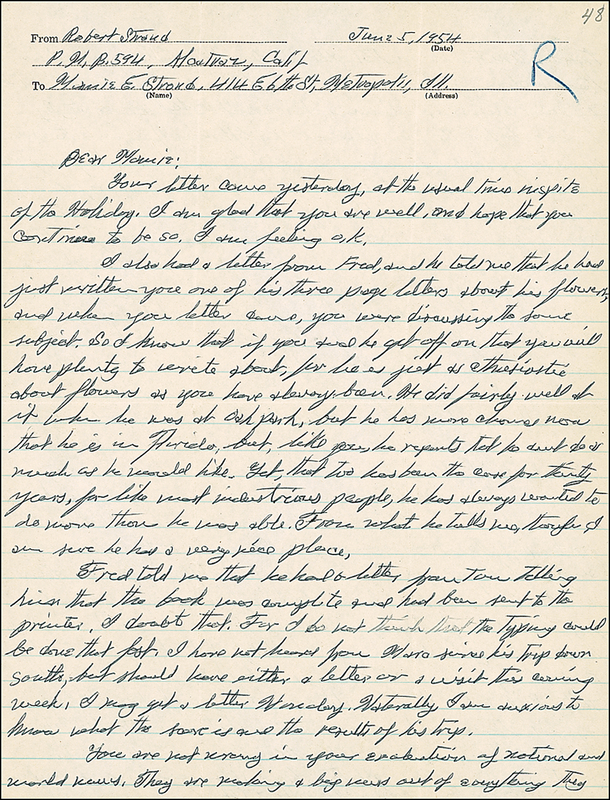 48
From Robert Stroud June 5, 1954
(Date)
P.M.B. 594, Alcatraz, Calif R
To Mamie E. Stroud, 414 E 6th St, Metropolis, Ill.
(Name) (Address)
Dear Mamie:
Your letter came yesterday, at the usual time inspite
of the Holiday. I am glad that you are well, and hope that you
continue to be so. I am feeling o.k.
I also had a letter from Fred, and he told me that he had
just written you one of his three page letters about his flowers
and when you letter came, you were discussing the same
subject. So I know that if you and he get off on that you will
have plenty to write about, for he is just as
about flowers as you have always been. He did fairly well at
it when he was at Oak park, but he has more chance now
that he is in Florida, but, like you, he reports that he cant do as
much as he would like. Yet, that too has been the case for thirty
years, for like most industrious people, he has always wanted to
do more than he was able. From what he tells me, though, I
am sure he has a very nice place,
Fred told me that he had a letter from Tom telling
him that the book was complete and had been sent to the
printer. I doubt that. For I do not think that the typing could
be done that fast. I have not heard from Marc since his trip down
South, but should have either a letter or a visit this coming
week, I may get a letter Monday. Naturally I am auxious to
know what the score is and the results of his trip.
You are not wrong in your evaluation of national and
world news. They are making a big news out of everything they